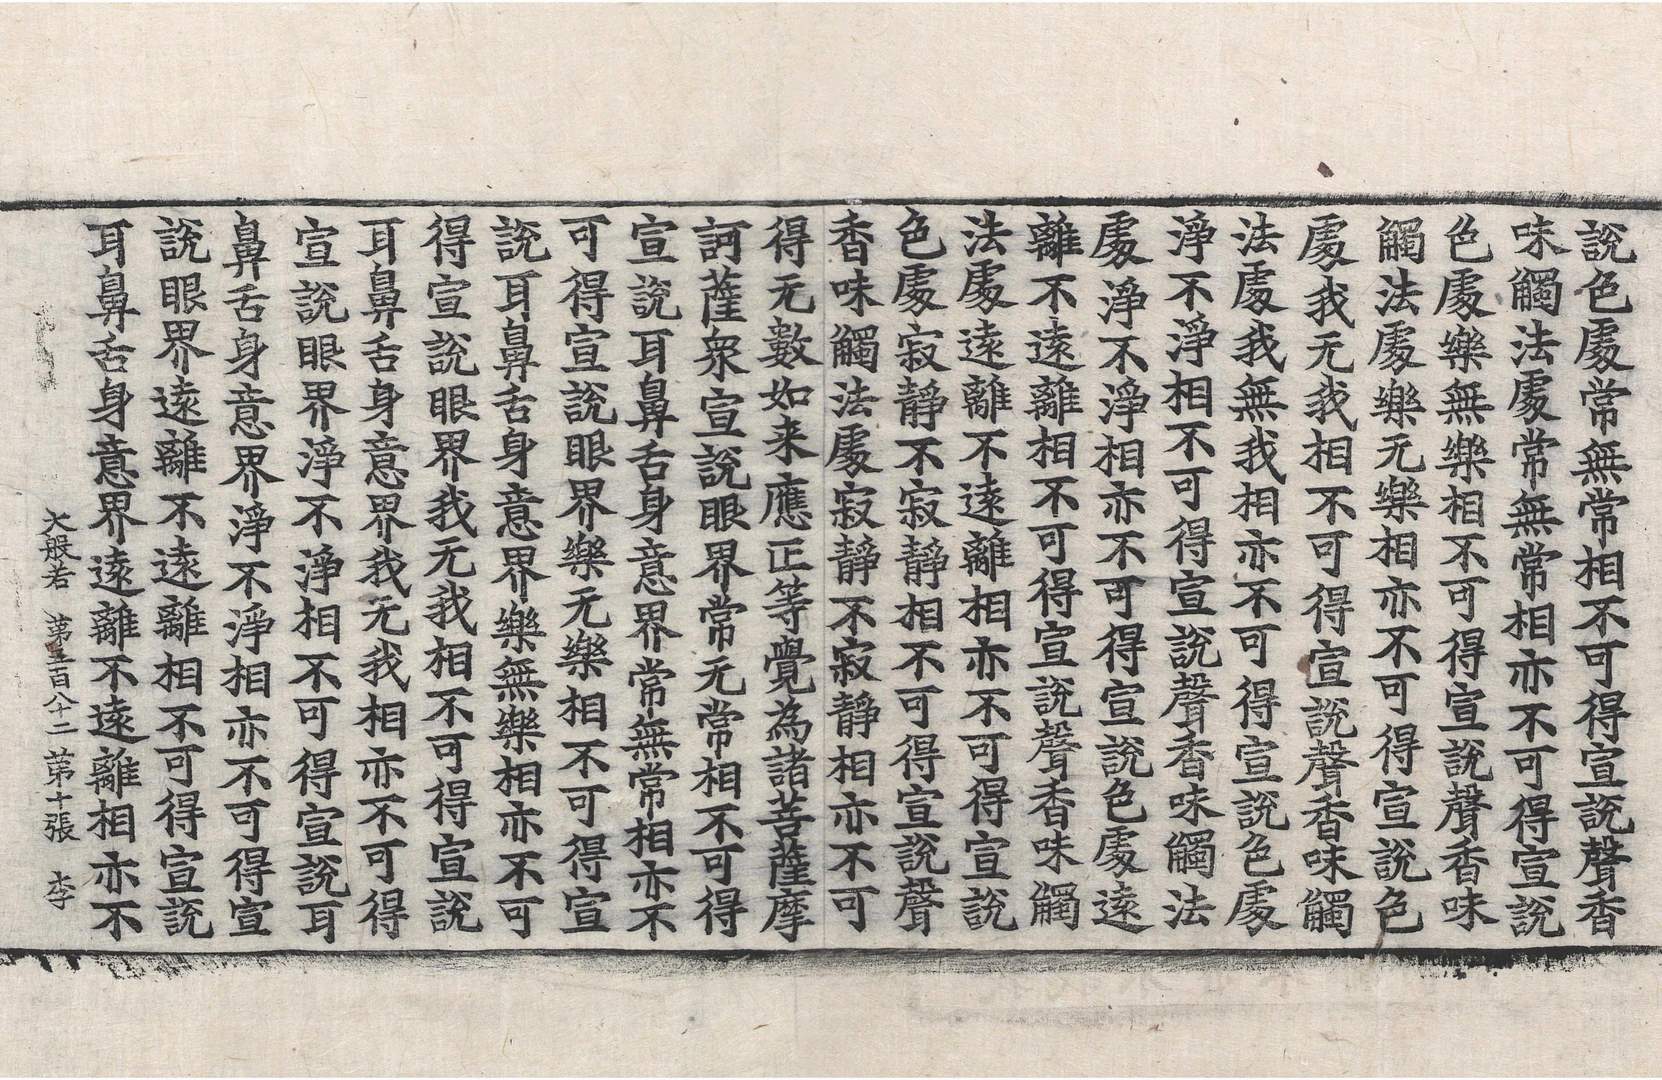 說色處常無常相不可得宣說聲香
味觸法處常無常相亦不可得宣說
色處樂無樂相不可得宣說聲香味
觸法處樂无樂相亦不可得宣說色
處我无我相不可得宣說聲香味觸
法處我無我相亦不可得宣說色處
淨不淨相不可得宣說聲香味觸法
處淨不淨相亦不可得宣說色處遠
離不遠離相不可得宣說聲香味觸
法處遠離不遠離相亦不可得宣說
色處寂靜不寂靜相不可得宣說聲
香味觸法處寂靜不寂靜相亦不可
得无數如来應正等覺為諸菩薩摩
訶薩衆宣說眼界常无常相不可得
宣說耳鼻舌身意界常無常相亦不
可得宣說眼界樂无樂相不可得宣
說耳鼻舌身意界樂無樂相亦不可
得宣說眼界我无我相不可得宣說
耳鼻舌身意界我无我相亦不可得
宣說眼界淨不淨相不可得宣說耳
鼻舌身意界淨不淨相亦不可得宣
說眼界遠離不遠離相不可得宣說
耳鼻舌身意界遠離不遠離相亦不
大般若 第五百八十二 第十張 李